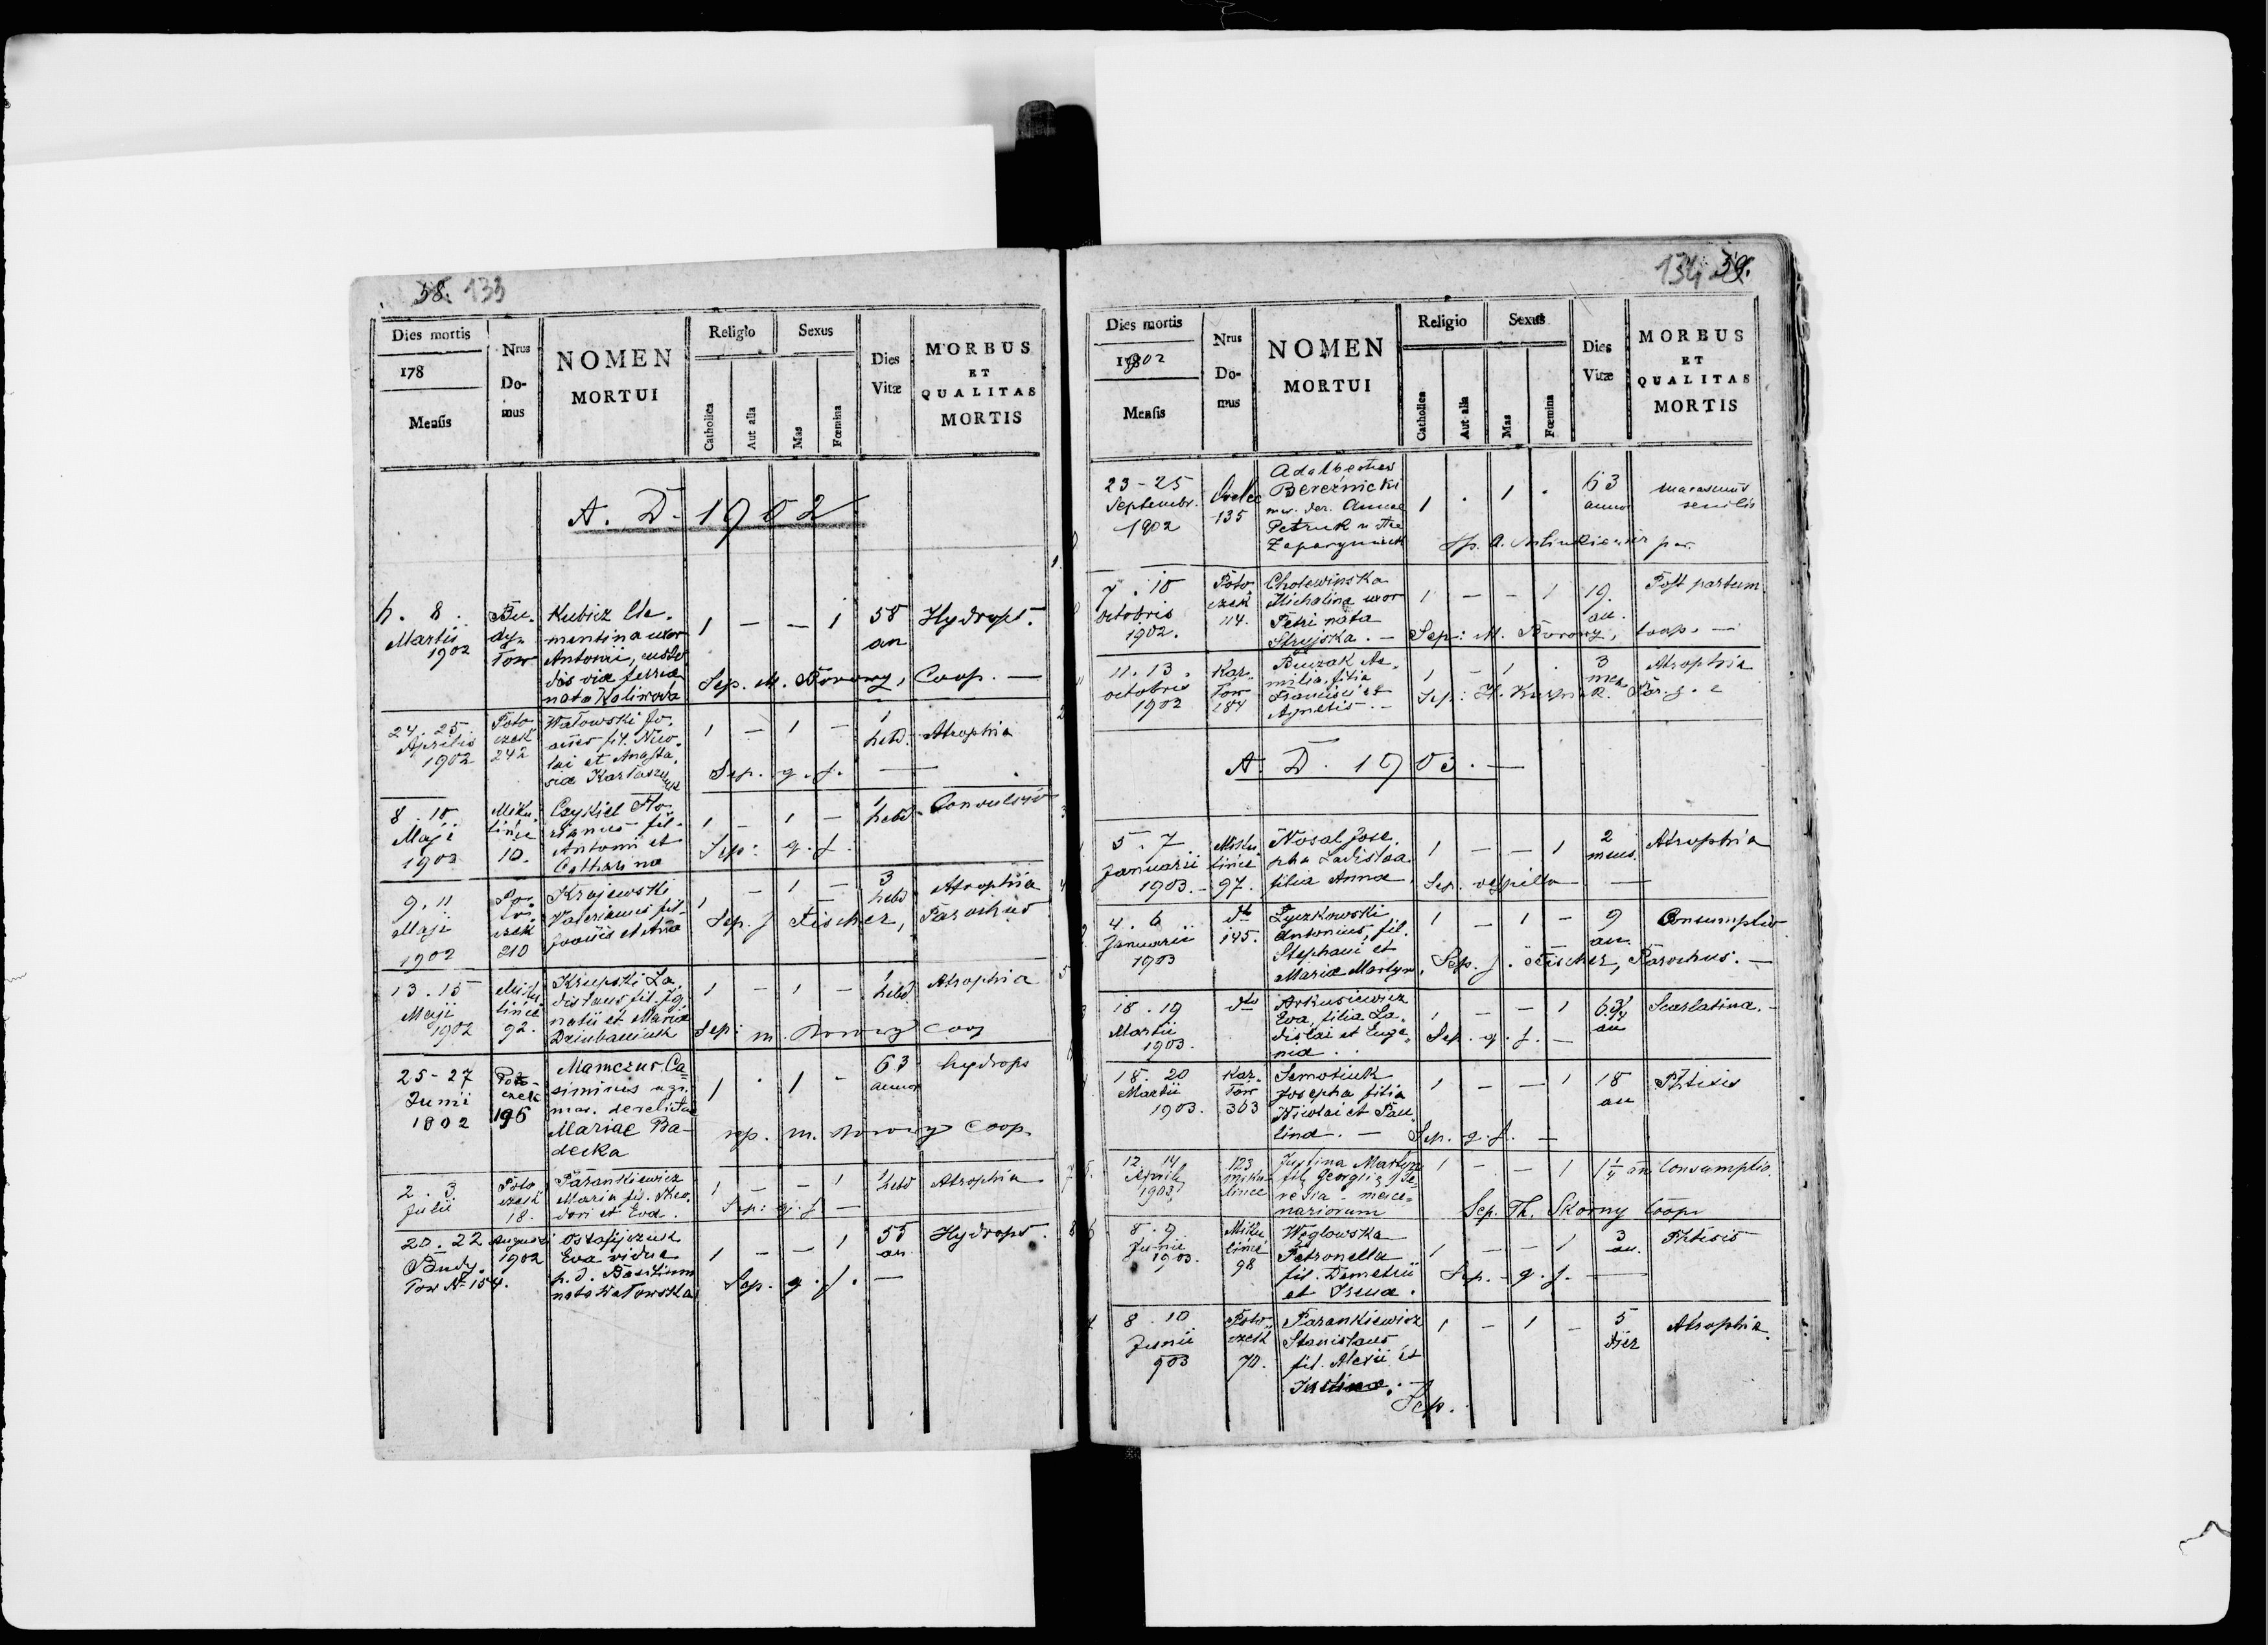 58. 133
Dies mortis
178
Mensis
Nrus
Do-
mus
NOMEN
MORTUI
Religio
Catholica
Aut alia
Sexus
Mas
Fœmina
Dies
Vitæ
MORBUS
ET
QUALITAS
MORTIS
A. D. 1902
8.
Martis
1902
Bu-
dy-
Tow
Kubisz Cle-
mentina uxor
Antonii, custo
dis viæ ferreæ
nata
1 — — 1
58
an
Hydrops.
Sep. M. Borowy, Coop. —
24. 25.
Aprilis
1902
Poto
czek
242
Watowski Jo-
anes fil. Nico-
lai et Anasta-
siæ
1 — 1 —
1
hebd.
Atrophia
Sep. g. f. —
8. 10.
Maji
1902
Miku-
lińce
10.
Czykiel Flo-
rianus fil.
Antonii et
Catharinæ
1 — 1 —
1
hebd.
Convulsio
Sep: g. f.
9. 11
Maji
1902
Po-
to-
czek
210
Krajewski
Valerianus fil.
Joannis et Annæ
1 — 1 —
3
hebd
Atrophia
Sep. J Fischer, Parochus
13. 15
Maji
1902
Miku-
lińce
92.
Krupski La-
dislaus fil. Ig-
natii et Mariæ
Dziubaniuk
1 — 1 —
1
hebd.
Atrophia
Sep: m. Borowy Coop
25-27
Junii
1902
Poto-
czek
196
Mamczur Ca-
simirus agr.
mar. derelictus
Mariae Ba-
decka
1 . 1 -
63
annor
hydrops
sep. m. Borowy Coop.
2. 3
Julii
Poto
czek
18.
Parankiewicz
Maria fil. Theo-
dori et Evæ.
1 — — 1
1
hebd
Atrophia
Sep: g. f. —
20. 22 Augusti
Budy. 1902
Tow № 154.
Ostafijczuk
Eva vidua
p. d. Basilium
nata Watowska
1 — — 1
55
an
Hydrops.
Sep. g. f. —
134 59.
Dies mortis
1902
Mensis
Nrus
Do-
mus
NOMEN
MORTUI
Religio
Catholica
Aut alia
Sexus
Mas
Fœmina
Dies
Vitæ
MORBUS
ET
QUALITAS
MORTIS
23-25
Septembr.
1902
135
Adalbertus
Bereźnicki
mar. der. Annae
Petruk n
1 . 1 .
63
annor
marasmus
senilis
7. 10
Octobris
1902.
Poto
czek
114.
Cholewinska
Michalina uxor
Petri nata
Stryjska. —
1 — — 1
19.
an.
Post partum
Sep: M. Borowy, Coop. —
11. 13.
Octobris
1902
Kar-
Tow
184
Francisci et
Agnetis. —
1 — 1 .
3
men
Atrophia
A. D. 1903. —
5. 7
Januarii
1903. —
Miku
lińce
97.
Nosal Jose-
pha Ladislaa.
filia Annæ
1 — — 1
2
mens.
Atrophia
Sep. vespillo —
4. 6
Januarii
1903
dto
145.
Łyczkowski
Antonius, fil.
Stephani et
Mariæ Martyn.
1 — 1 —
9
an.
Consumptio
Sep. J. Fischer, Parochus. —
18. 19
Martii
1903.
dto
Arkusiewicz
Eva, filia La-
dislai et Euge-
niæ.
1 — — 1
6 3/4
an
Scarlatina. —
Sep. g. f. —
18. 20
Martii
1903.
Kar-
Tow
363
Semotiuk
Josepha filia
Nicolai et Pau-
linæ. —
1 — — 1
18
an
Phtisis
Sep. g. f. —
12 14
Aprilis
1903
123
miku
lińce
Justina Martyn
fil. Georgii
merce-
nariorum
1 — — 1
1 1/4 an
Consumptio.
Sep. Th. Skorny Coop
8. 9
Junii
1903.
Miku
lińce
98
Węglowska
Petronella
fil. Demetrii
et Irenæ.
1 — — 1
3
an.
Phtisis
Sep. — g. f. —
8. 10
Junii
903
Poto-
czek
70.
Parankiewicz
Stanislaus
fil. Alexii et
Justinæ. —
1 — 1 —
5
dies
Atrophia.
Sep.